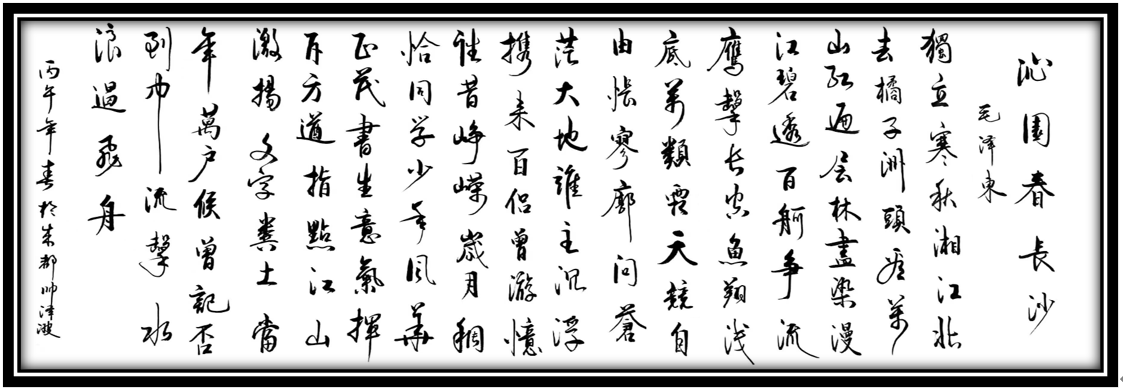 沁園春長沙
毛泽東
獨立寒秋湘江北
去橘子洲頭看萬
山红遍层林盡染漫
江碧透百舸争流
鹰擊长空魚翔浅
底萬類霜天競自
由怅寥廓问蒼
茫大地誰主沉浮
携来百侣曾游憶
往昔峥嵘歲月稠
恰同学少年风華
正茂書生意氣揮
斥方遒指點江山
激揚文字粪土當
年萬户候曾記否
到中流擊水
浪遏飛舟
丙午年春於都帅津波